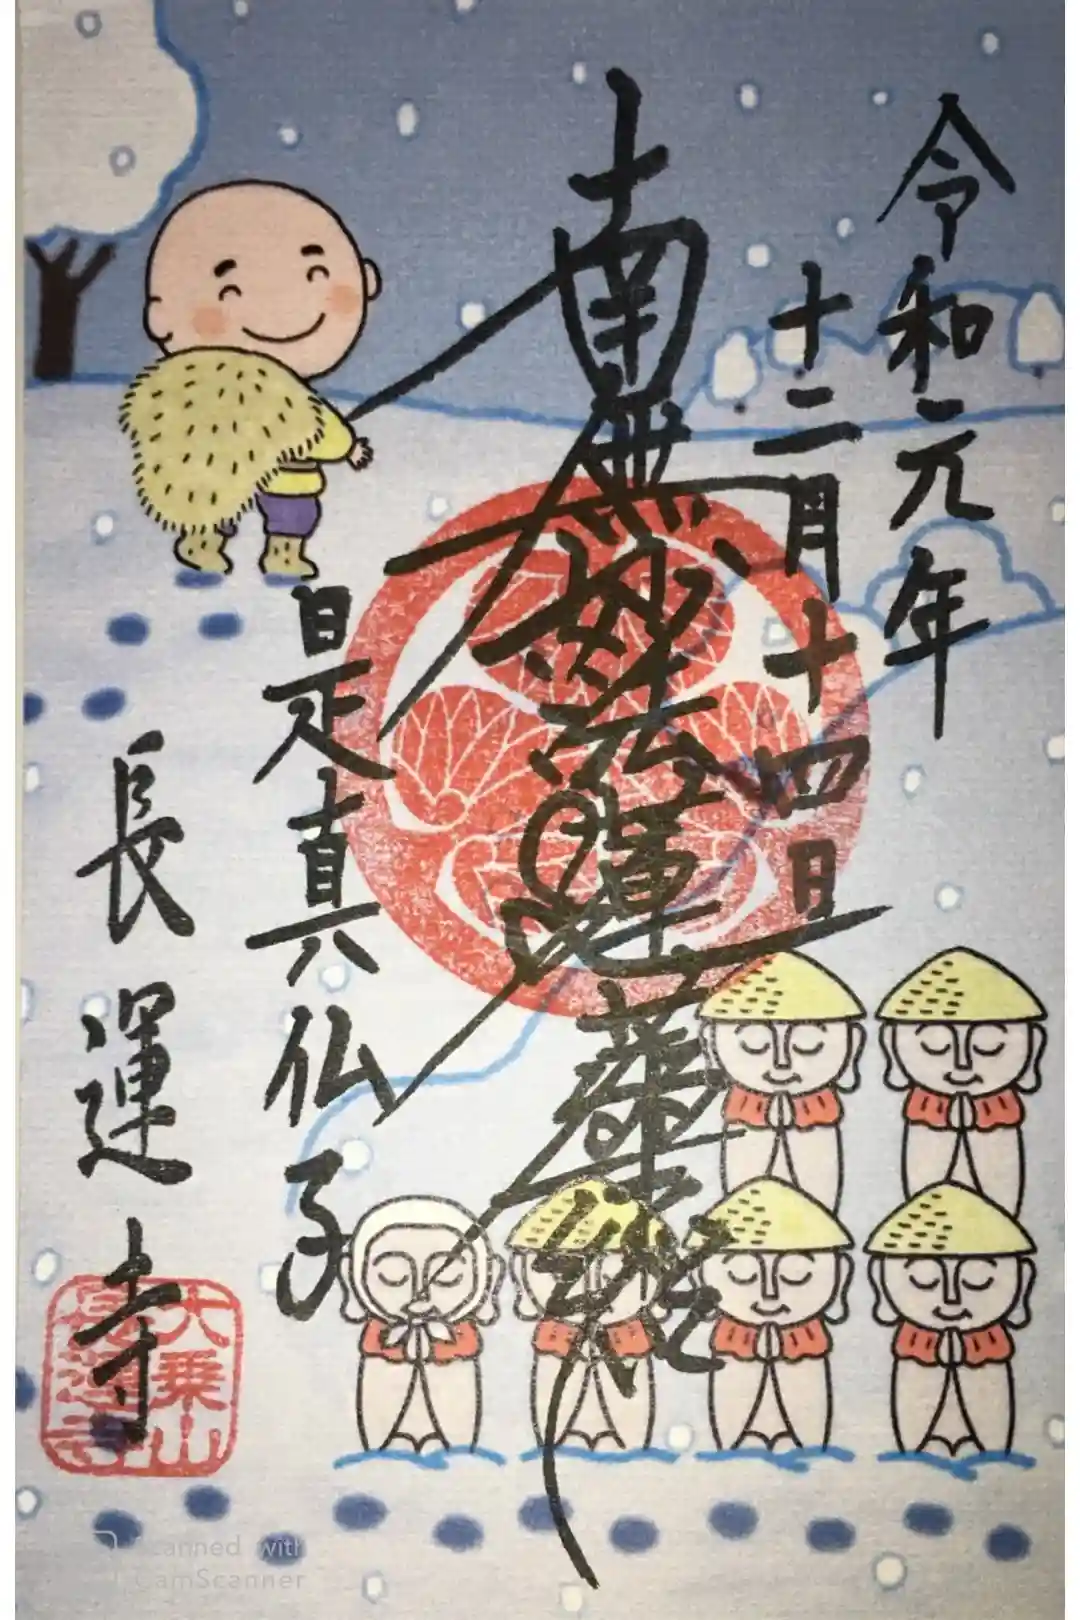 令和元年
十二月十四日
南無妙法蓮華経
是真仏子
長運寺
大乗山
長運寺
Scanned with
CamScanner